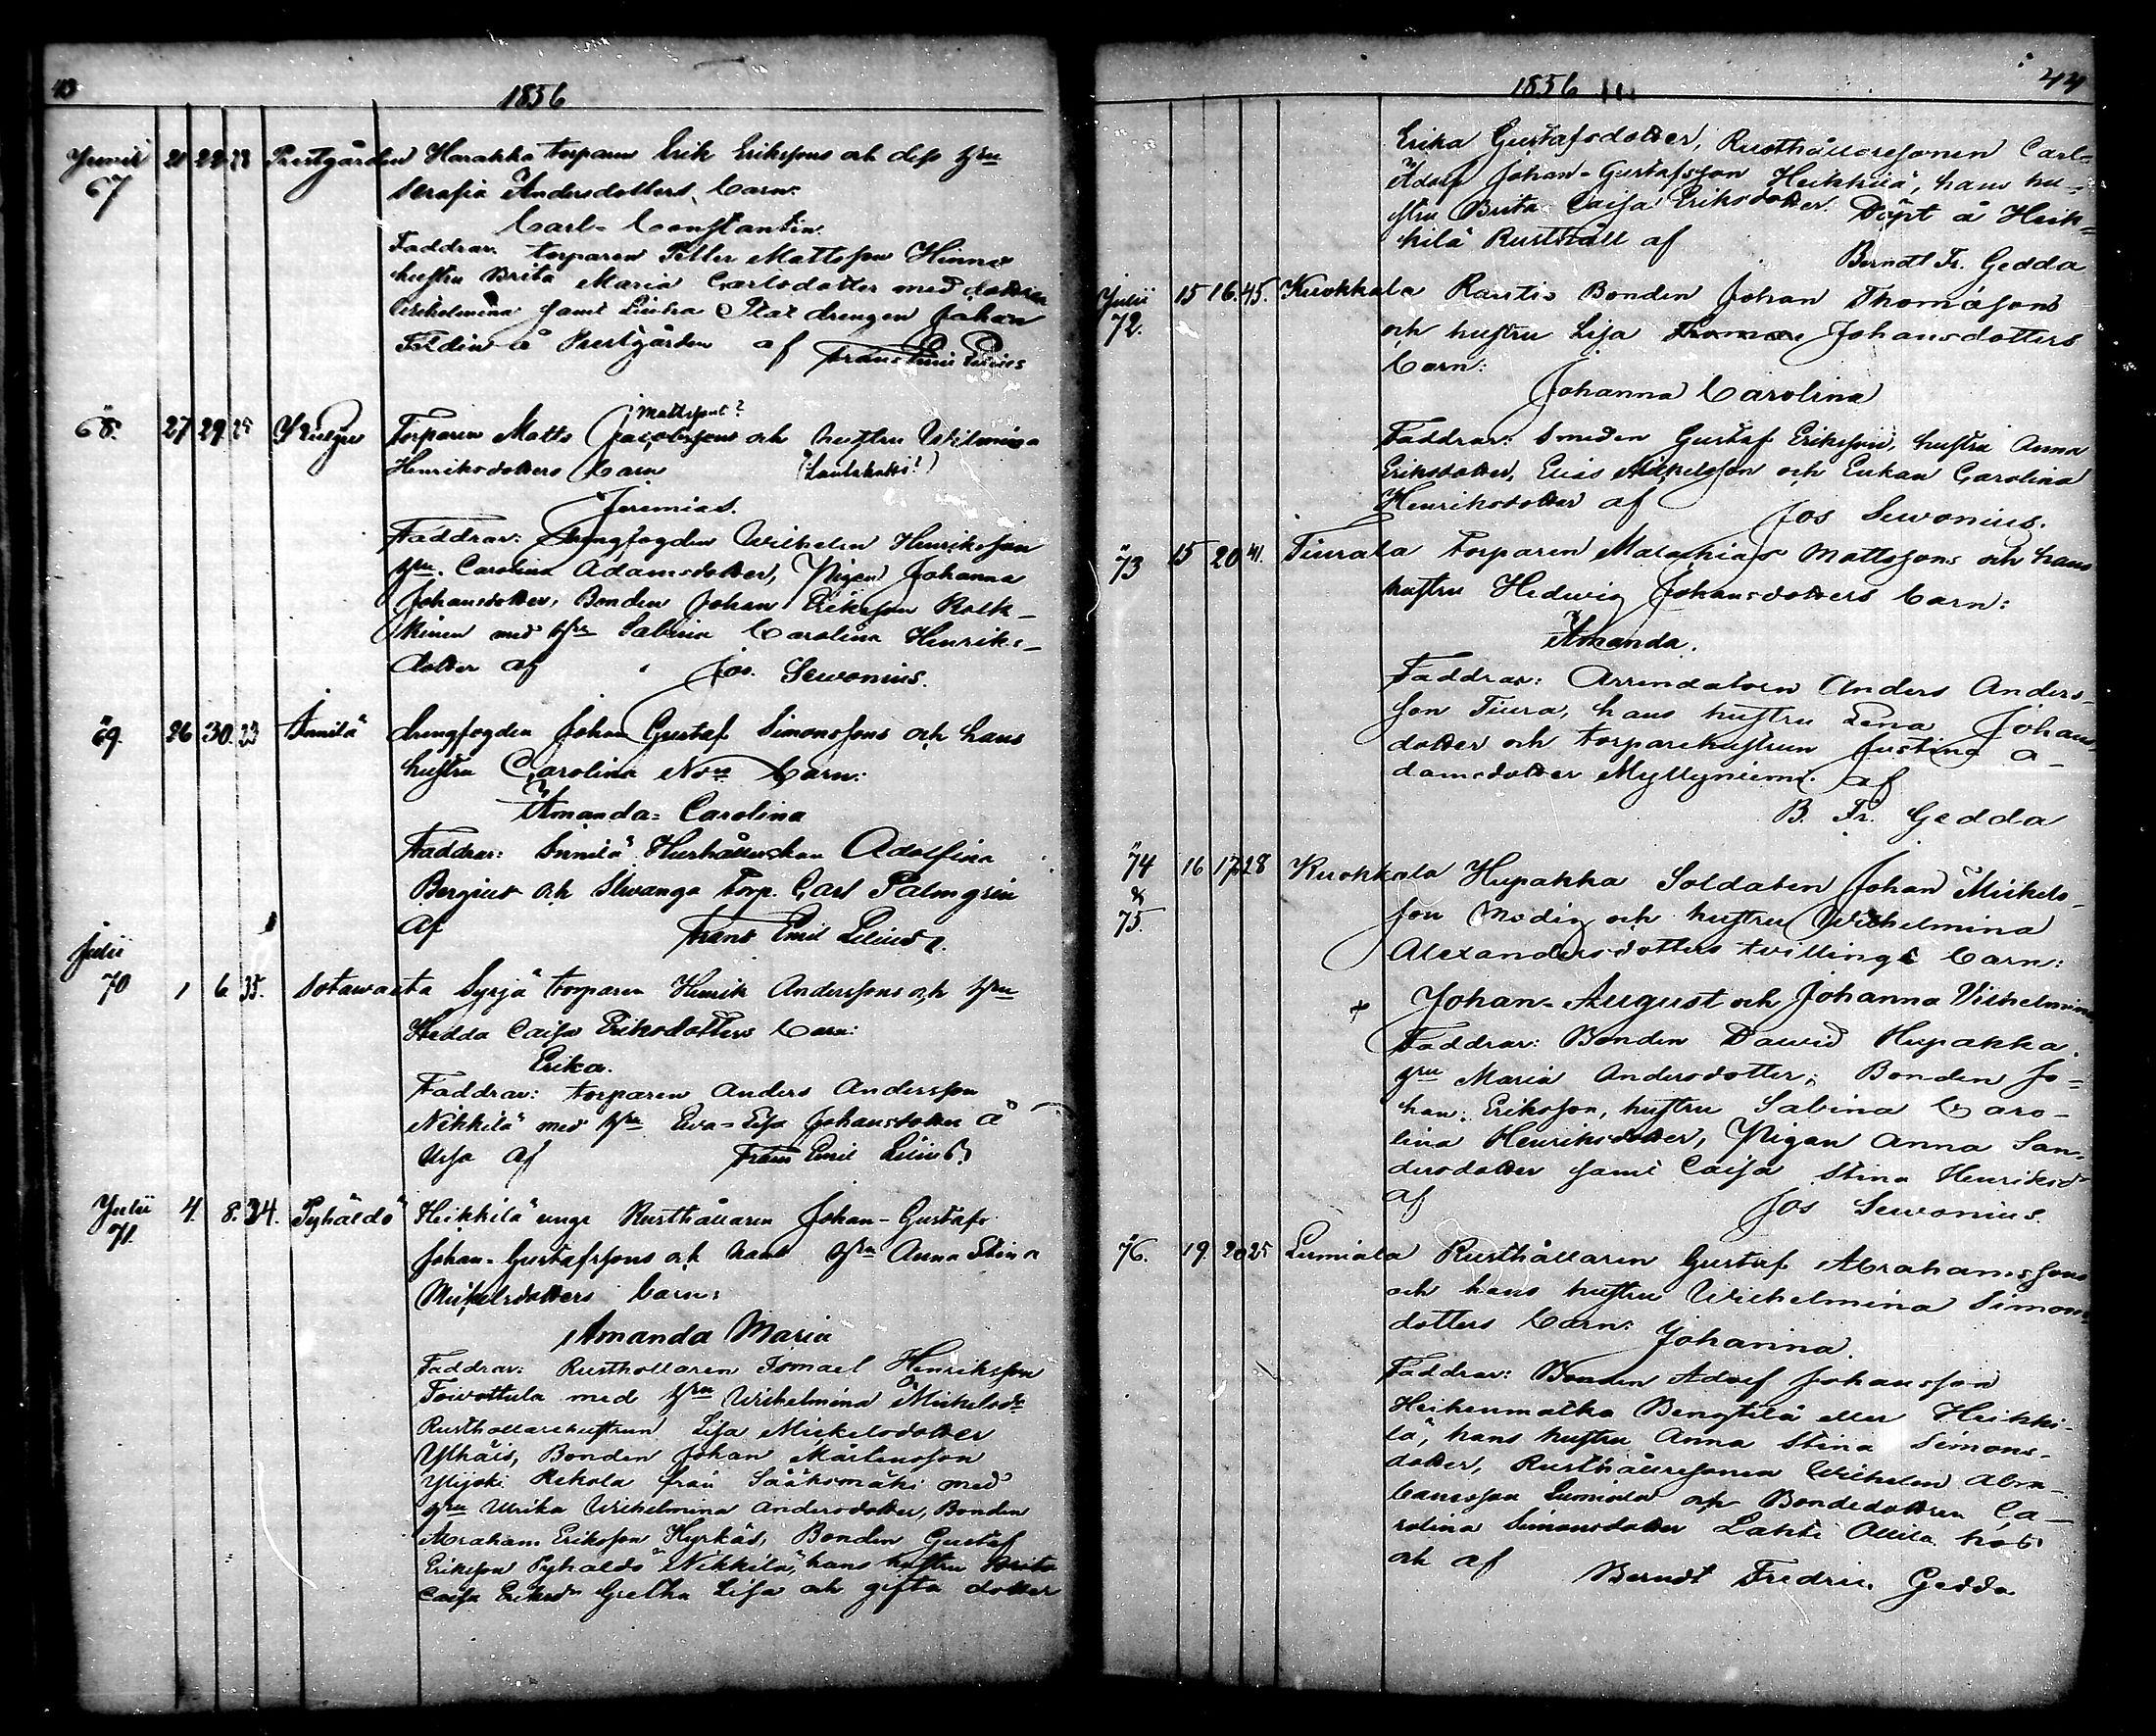 43
1856
Junii 67 21 22 23 Prestgården Harakka torparen Erik Erikssons och dess Hru
Serafia Andersdotters barn:
Carl-Constantin
Faddrar: torparen Petter Mattsson Hinna
hustru Brita Maria Carlsdotter med dottren
Wilhelmina samt drengen Johan
å Prestgården af Frans Emil Lilius
" 68. 27 29 25 Torparen Matts Jacobssons Mattssons? och hustru Wilmina
Henriksdotters barn
Jeremias.
Faddrar: drengfogden Wilhelm Henriksson
Hru Carolina Adamsdotter, Pigan Johanna
Johansdotter, Bonden Johan Eriksson
med Hru Sabina Carolina Henriks-
dotter af Jos. Sewonius.
" 69. 26 30. 23 Annila drengfogden Johan Gustaf Simonssons och hans
hustru Carolina barn:
Amanda-Carolina
Faddrar: Annila Hushållerskan Adolfina
Bergius och torp. Carl Palmgren
af Frans Emil Lilius
Julii
70 1 6 35. Sotawalta Syrjä torparen Henrik Anderssons och Hru
Hedda Caisa Eriksdotters barn:
Erika.
Faddrar: torparen Anders Andersson
Nikkilä med Hru Ewa-Lisa Johansdotter å
Ursa af Frans Emil Lilius
Julii 71. 4. 8. 34. Pyhäldö Heikkilä unge Rusthållaren Johan-Gustaf
Johan-Gustafssons och hans Hru Anna Stina
Mickelsdotters barn:
Amanda Maria
Faddrar: Rusthollaren Ismael Henriksson
Toivottula med Hru Wilhelmina Mickelsdr
Rusthollarehustrun Lisa Mickelsdotter
Ylhäis, Bonden Johan Mårtensson
Ylijoki Rekola från Sääksmäki med
Hru Ulrika Wilhelmina Andersdotter, Bonden
Abraham Eriksson Hyrkäs, Bonden Gustaf
Eriksson Pyhäldö Nikkilä, hans hustru Brita
Caisa Eriksdr Gretha Lisa och gifta dotter
1856
44
Erika Gustafsdotter, Rusthållaresonen Carl-
Adolf Johan-Gustafsson Heikkilä, hans hu-
stru Brita Caisa Eriksdotter. Döpt å Heik-
kilä Rusthåll af
Berndt Fr. Gedda
Julii 72. 15 16. 45. Kuokkala Rantis Bonden Johan Thomassons
och hustru Lisa Johansdotters
barn:
Johanna Carolina
Faddrar: Smeden Gustaf Eriksson, hustru Anna
Eriksdotter, Elias Mickelsson och Enkan Carolina
Henriksdotter af Jos Sewonius.
" 73 15 20 41. Tiurala Torparen Malachias Mattssons och hans
hustru Hedwig Johansdotters barn:
Amanda.
Faddrar: Arrendatorn Anders Anders-
son Tiura, hans hustru Lena Johans-
dotter och torparehustrun Justina A-
damsdotter Myllyniemi af
B. Fr. Gedda
" 74 & 75. 16 17 28 Kuokkala Hupakka Soldaten Johan Mickels-
son Modig och hustru Wilhelmina
Alexandersdotters tvillinge barn:
Johan-August och Johanna Vilhelmina
Faddrar: Bonden Dawid Hupakka.
Hru Maria Andersdotter; Bonden Jo-
han Eriksson, hustru Sabina Caro-
lina Henriksdotter, Pigan Anna San-
dersdotter samt Caisa Stina Henriksd
af Jos Sewonius.
" 76. 19. 20 25 Lumiala Rusthållaren Gustaf Abrahamssons
och hans hustru Wilhelmina Simons-
dotters barn: Johanna
Faddrar: Bonden Adolf Johansson
Heikunmatka Bengtilä eller Heikki-
lä, hans hustru Anna Stina Simons-
dotter, Rusthållaresonen Wilhelm Abra-
hamsson Lumiala och Bondedottren Ca-
rolina Simonsdotter Lahti Ollila hos
och af Berndt Fredric Gedda